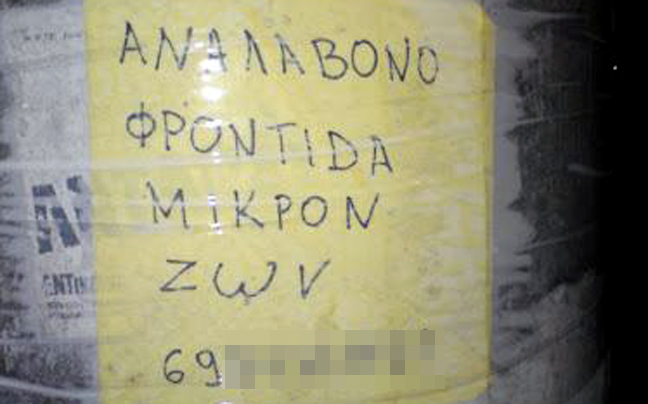 ΑΝΑΛΑΒΟΝΟ
ΦΡΟΝΤΙDΑ
ΜΙΚΡΟΝ
Ζων
69